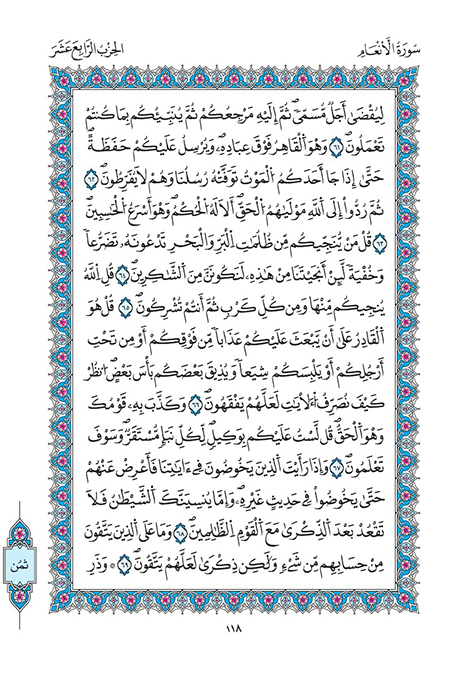 سُورَةُ الْأَنْعَامِ
الحِزْبُ الرَّابِعَ عَشَرَ
لِيُقْضَىٰٓ أَجَلٌ مُّسَمّىٗ ثُمَّ إِلَيْهِ مَرْجِعُكُمْ ثُمَّ يُنَبِّئُكُم بِمَا كُنتُمْ
تَعْمَلُونَ ٦١ وَهُوَ اَ۬لْقَاهِرُ فَوْقَ عِبَادِهِۦ وَيُرْسِلُ عَلَيْكُمْ حَفَظَةً
حَتَّىٰٓ إِذَا جَآ أَحَدَكُمُ اُ۬لْمَوْتُ تَوَفَّتْهُ رُسُلُنَا وَهُمْ لَا يُفَرِّطُونَ ٦٢
ثُمَّ رُدُّوٓاْ إِلَى اَ۬للَّهِ مَوْلَيٰهُمُ اُ۬لْحَقِّ أَلَا لَهُ اُ۬لْحُكْمُ وَهُوَ أَسْرَعُ اُ۬لْحَٰسِبِينَ
٦٣ قُلْ مَنْ يُّنَجِّيكُم مِّن ظُلُمَٰتِ اِ۬لْبَرِّ وَالْبَحْرِ تَدْعُونَهُۥ تَضَرُّعاٗ
وَخُفْيَةٗ لَّئِنْ أَنجَيْتَنَا مِنْ هَٰذِهِۦ لَنَكُونَنَّ مِنَ اَ۬لشَّٰكِرِينَ ٦٤ قُلِ اِ۬للَّهُ
يُنجِيكُم مِّنْهَا وَمِن كُلِّ كَرْبٖ ثُمَّ أَنتُمْ تُشْرِكُونَ ٦٥ قُلْ هُوَ
اَ۬لْقَادِرُ عَلَىٰٓ أَنْ يَّبْعَثَ عَلَيْكُمْ عَذَاباٗ مِّن فَوْقِكُمْ أَوْ مِن تَحْتِ
أَرْجُلِكُمْ أَوْ يَلْبِسَكُمْ شِيَعاٗ وَيُذِيقَ بَعْضَكُم بَأْسَ بَعْضٍ اُ۟نظُرْ
كَيْفَ نُصَرِّفُ اُ۬لْأٓيَٰتِ لَعَلَّهُمْ يَفْقَهُونَ ٦٦ وَكَذَّبَ بِهِۦ قَوْمُكَ
وَهُوَ اَ۬لْحَقُّ قُل لَّسْتُ عَلَيْكُم بِوَكِيلٖ لِّكُلِّ نَبَإٖ مُّسْتَقَرّٞ وَسَوْفَ
تَعْلَمُونَ ٦٧ وَإِذَا رَأَيْتَ اَ۬لذِينَ يَخُوضُونَ فِےٓ ءَايَٰتِنَا فَأَعْرِضْ عَنْهُمْ
حَتَّىٰ يَخُوضُواْ فِے حَدِيثٍ غَيْرِهِۦ وَإِمَّا يُنسِيَنَّكَ اَ۬لشَّيْطَٰنُ فَلَا
تَقْعُدْ بَعْدَ اَ۬لذِّكْرَىٰ مَعَ اَ۬لْقَوْمِ اِ۬لظَّٰلِمِينَ ٦٨ وَمَا عَلَى اَ۬لذِينَ يَتَّقُونَ
مِنْ حِسَابِهِم مِّن شَےْءٖ وَلَٰكِن ذِكْرَىٰ لَعَلَّهُمْ يَتَّقُونَ ٦٩ وَذَرِ
ثُمُن
١١٨